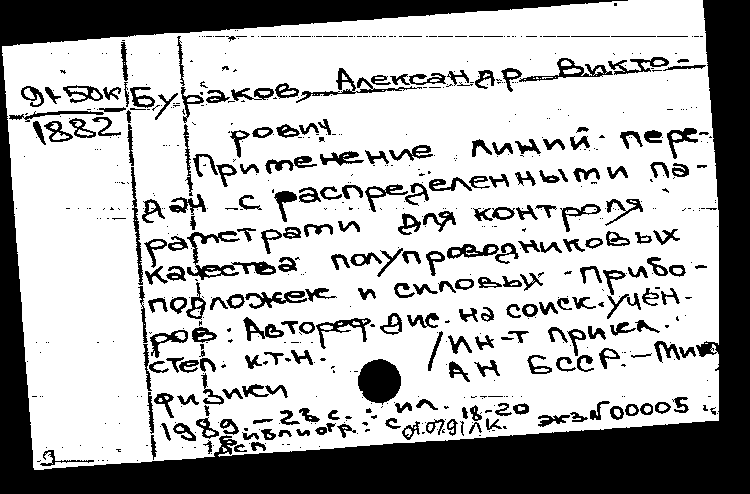 91-50к Бураков, Александр Викто-
1882 рович
Применение линий пере-
дач с распределенными па-
раметрами для контроля
качества полупроводниковых
подложек и силовых прибо-
ров: Автореф. дис. на соиск. учен.
степ. к.т.н. /Ин-т прикл.
физики АН БССР. - Минск
1989. - 23 с. : ил.
Библиогр.: с. 18-20
ДСП 01.07.91 ЛК. экз.N00005